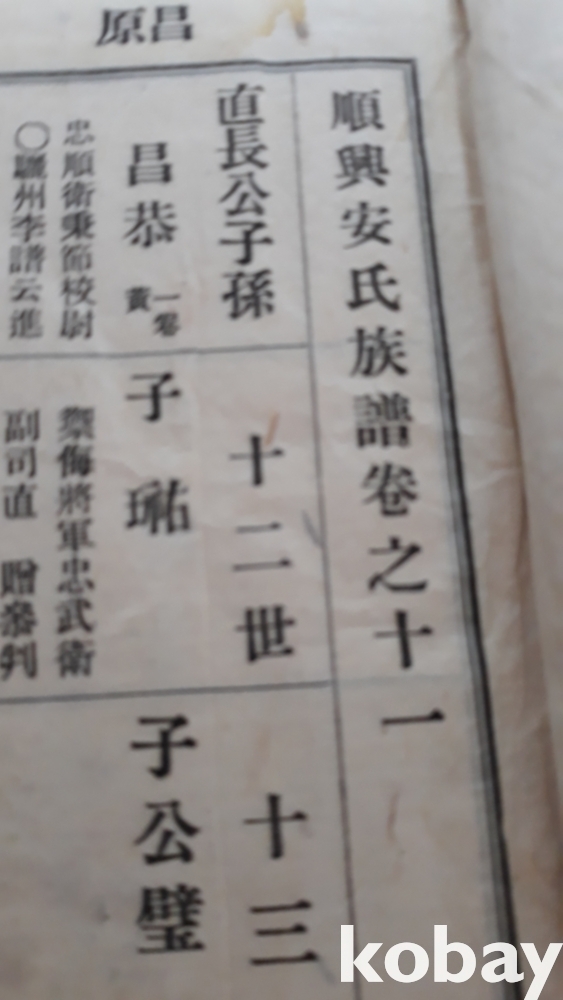 昌原
順興安氏族譜卷之十一
直長公子孫
昌恭
一零
黃
忠順衛秉節校尉
〇驪州李譜云進
十二世
子 琋
禦侮將軍忠武衛
副司直 贈參判
十三
子公璧
kobay